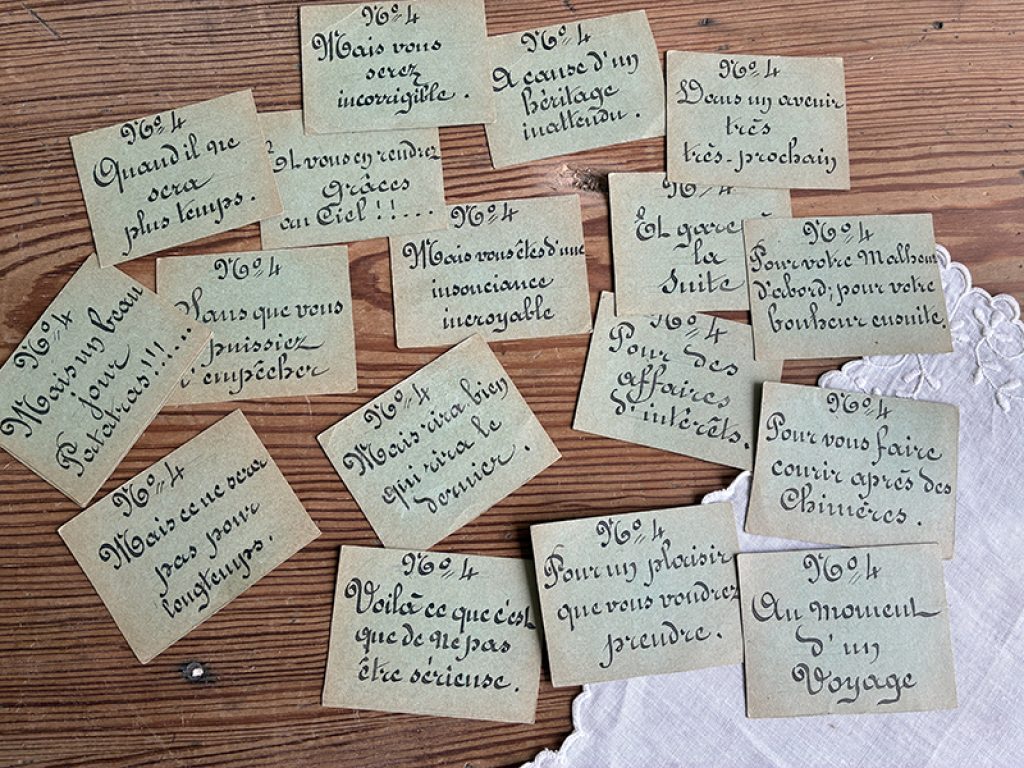 Nº 4
Mais vous
serez
incorrigible.
Nº 4
A cause d'un
héritage
inattendu.
Nº 4
Dans un avenir
très
très-prochain
Nº 4
Quand il ne
sera
plus temps.
Et vous en rendrez
grâces
au Ciel!!....
Nº 4
Mais vous êtes d'une
insouciance
incroyable
Nº 4
Et gare
la
suite
Nº 4
Pour votre Malheur
d'abord; pour votre
bonheur ensuite.
Nº 4
Mais un beau
jour
Patatras!!!.....
Nº 4
Sans que vous
puissiez
l'empêcher
Nº 4
Mais rira bien
qui rira le
dernier.
Nº 4
Pour des
affaires
d'intérêts.
Nº 4
Pour vous faire
courir après des
Chimères.
Nº 4
Mais ce ne sera
pas pour
longtemps.
Nº 4
Voilà ce que c'est
que de ne pas
être sérieuse.
Nº 4
Pour un plaisir
que vous voudrez
prendre.
Nº 4
Au moment
d'un
Voyage